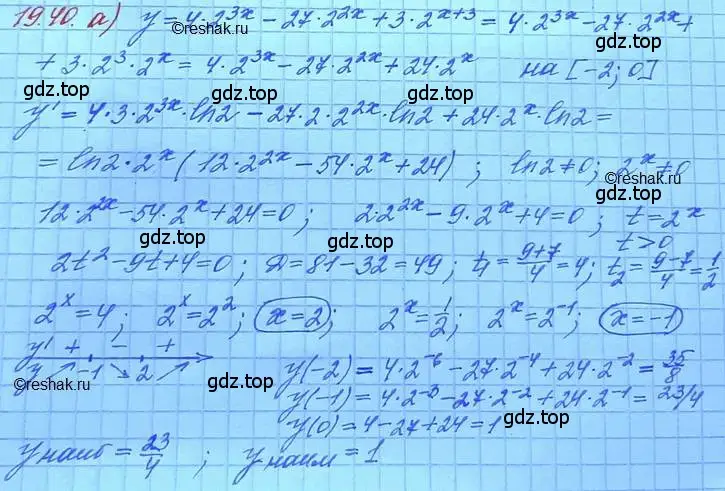 19.40. а) y = 4·2^{3x} - 27·2^{2x} + 3·2^{x+3} = 4·2^{3x} - 27·2^{2x} +
©reshak.ru
+ 3·2^3·2^x = 4·2^{3x} - 27·2^{2x} + 24·2^x на [-2; 0]
gdz.top gdz.top gdz.top
y' = 4·3·2^{3x}·ln2 - 27·2·2^{2x}·ln2 + 24·2^x·ln2 =
= ln2·2^x (12·2^{2x} - 54·2^x + 24) ; ln2≠0; 2^x≠0
©reshak.ru gdz.top
12·2^{2x} - 54·2^x + 24 = 0 ; 2·2^{2x} - 9·2^x + 4 = 0 ; t = 2^x
gdz.top gdz.top t > 0
2t² - 9t + 4 = 0 ; D = 81 - 32 = 49 ; t_1 = \frac{9+7}{4} = 4; t_2 = \frac{9-7}{4} = \frac{1}{2}
gdz.top
2^x = 4; 2^x = 2^2; x = 2 ; 2^x = \frac{1}{2}; 2^x = 2^{-1}; x = -1
©reshak.ru
y' + - +
y -1 2 y(-2) = 4·2^{-6} - 27·2^{-4} + 24·2^{-2} = \frac{35}{8}
©reshak.ru gdz.top gdz.top
y(-1) = 4·2^{-3} - 27·2^{-2} + 24·2^{-1} = 23/4
y(0) = 4 - 27 + 24 = 1
gdz.top
y наиб = \frac{23}{4} ; y наим = 1
gdz.top ©reshak.ru